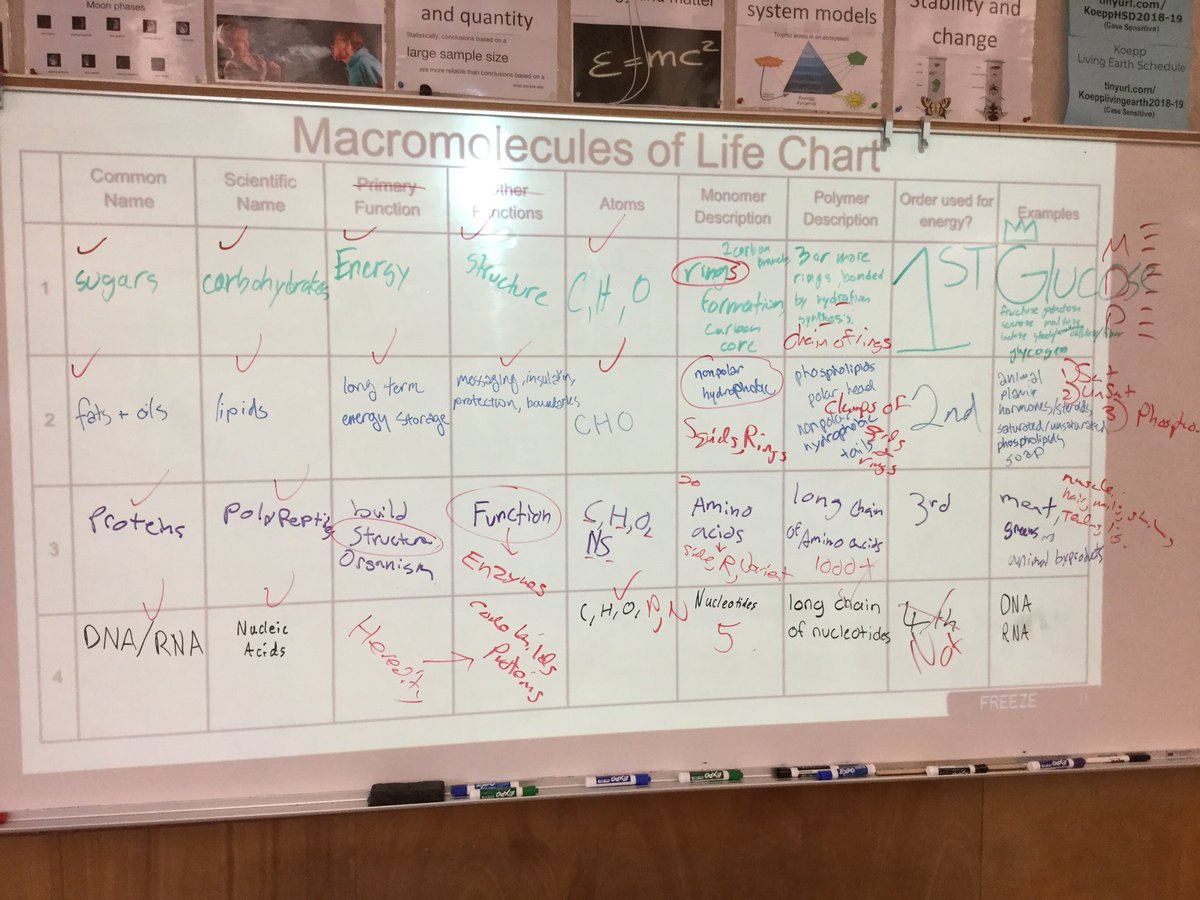 Moon phases
and quantity
Statistically, conclusions based on a
large sample size
are more reliable than conclusions based on a
small sample size
ε=mc²
system models
Trophic levels in an ecosystem
Energy
Pyramid
Stability and
change
tinyurl.com/
KoeppHSD2018-19
(Case Sensitive)
Koepp
Living Earth Schedule
tinyurl.com/
Koepplivingearth2018-19
(Case Sensitive)
Macromolecules of Life Chart
Common
Name
Scientific
Name
Primary
Function
Other
Functions
Atoms
Monomer
Description
Polymer
Description
Order used for
energy?
Examples
1
sugars
carbohydrates
Energy
Structure
C, H, O
1 carbon
branch
rings
formation
carbon
core
3 or more
rings bonded
by hydration
synthesis.
chain of rings
1ST
Glucose
fructose
glycogen
M
D
P
2
fats + oils
lipids
long term
energy storage
messaging, insulation,
protection, boundaries
CHO
nonpolar
hydrophobic
Sqids, Rings
phospholipids
polar head
Clumps of
nonpolar
hydrophobic
tails
rings
2nd
animal
hormones/steroids
saturated/unsaturated
phospholipids
soap
1) Sat
2) UnSat
3) Phospho
3
Proteins
PolyPeptides
build
Structure
Organism
Function
Enzymes
C, H, O2
NS
20
Amino
acids
side, R, Varient
long chain
of Amino acids
1000+
3rd
meat,
greens
animal byproducts
muscle
hair
4
DNA/RNA
Nucleic
Acids
Heredity
Code builds
Proteins
C, H, O, P, N
Nucleotides
5
long chain
of nucleotides
4th
Not
DNA
RNA
FREEZE
EXPO
EXPO
EXPO
EXPO